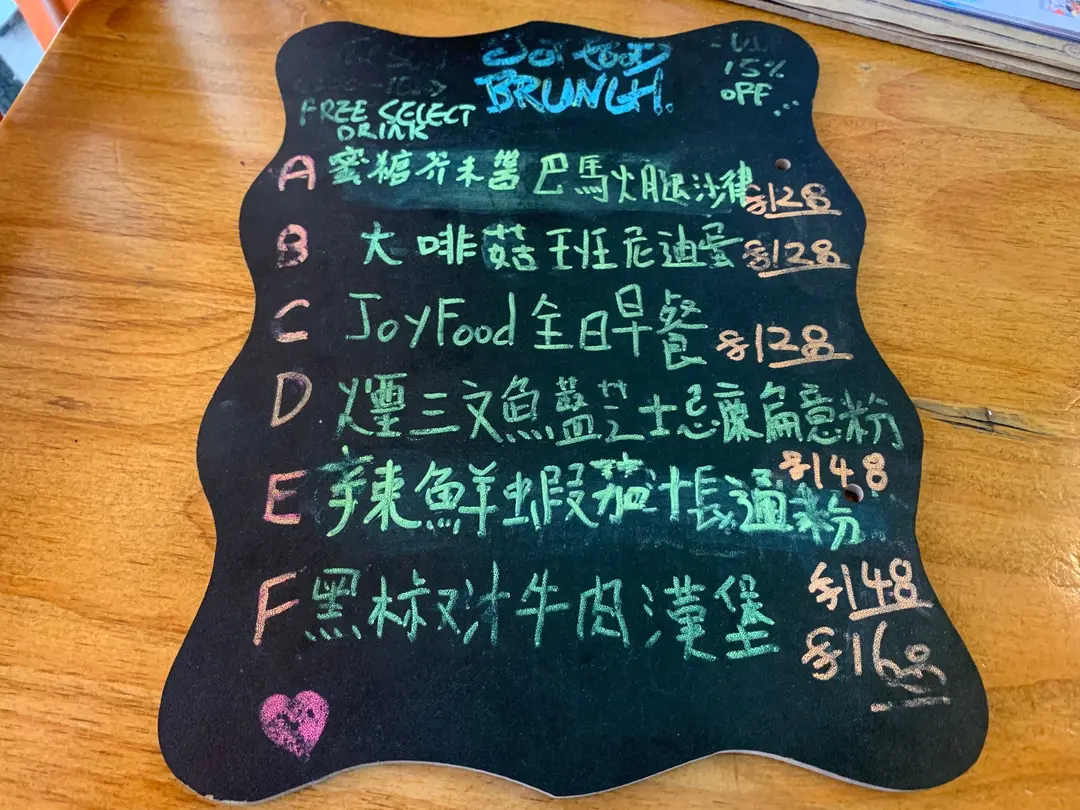 Joy Food
BRUNCH.
15%
OFF
FREE SELECT
DRINK
A 蜜糖芥末醬巴馬火腿沙律 $128
B 大啡菇班尼迪蛋 $128
C JoyFood 全日早餐 $128
D 煙三文魚藍芝士忌廉扁意粉
$148
E 辣鮮蝦茄長通粉
$148
F 黑椒汁牛肉漢堡
$168